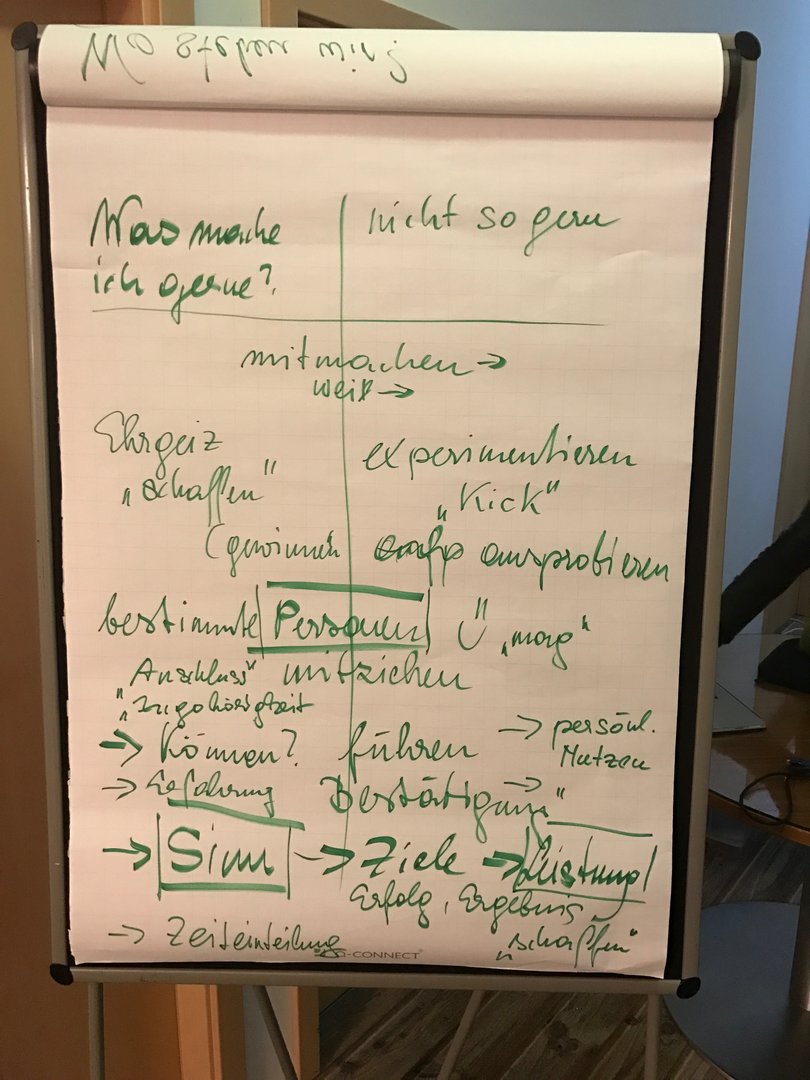 Wo stehen wir?
Was mache
ich gerne?
nicht so gern
mitmachen →
weiß →
Ehrgeiz
„schaffen"
(gewinnen
experimentieren
„Kick"
ausprobieren
bestimmte Personen ü „mag"
„Anschluss" mitziehen
„Zugehörigkeit
→ Können? führen → persönl.
Nutzen
→ Erfahrung Bestätigung"
→ Sinn → Ziele → Leistung
Erfolg, Ergebnis
→ Zeiteinteilung „schaffen"
Q-CONNECT